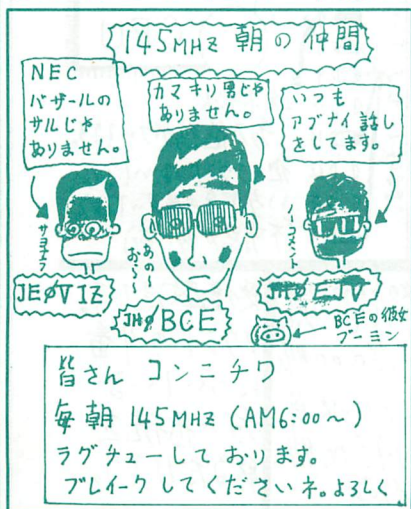 145MHZ 朝の仲間
NEC
バザールの
サルじゃ
ありません。
カマキリ男じゃ
ありません。
いつも
アブナイ話し
をしてます。
サヨナラ
あの〜
おら〜
ノーコメント
JEØVIZ
JHØBCE
BCEの彼女
ブーミン
皆さん コンニチワ
毎朝 145MHZ (AM6:00〜)
ラグチューしております。
ブレイークしてくださいネ。よろしく